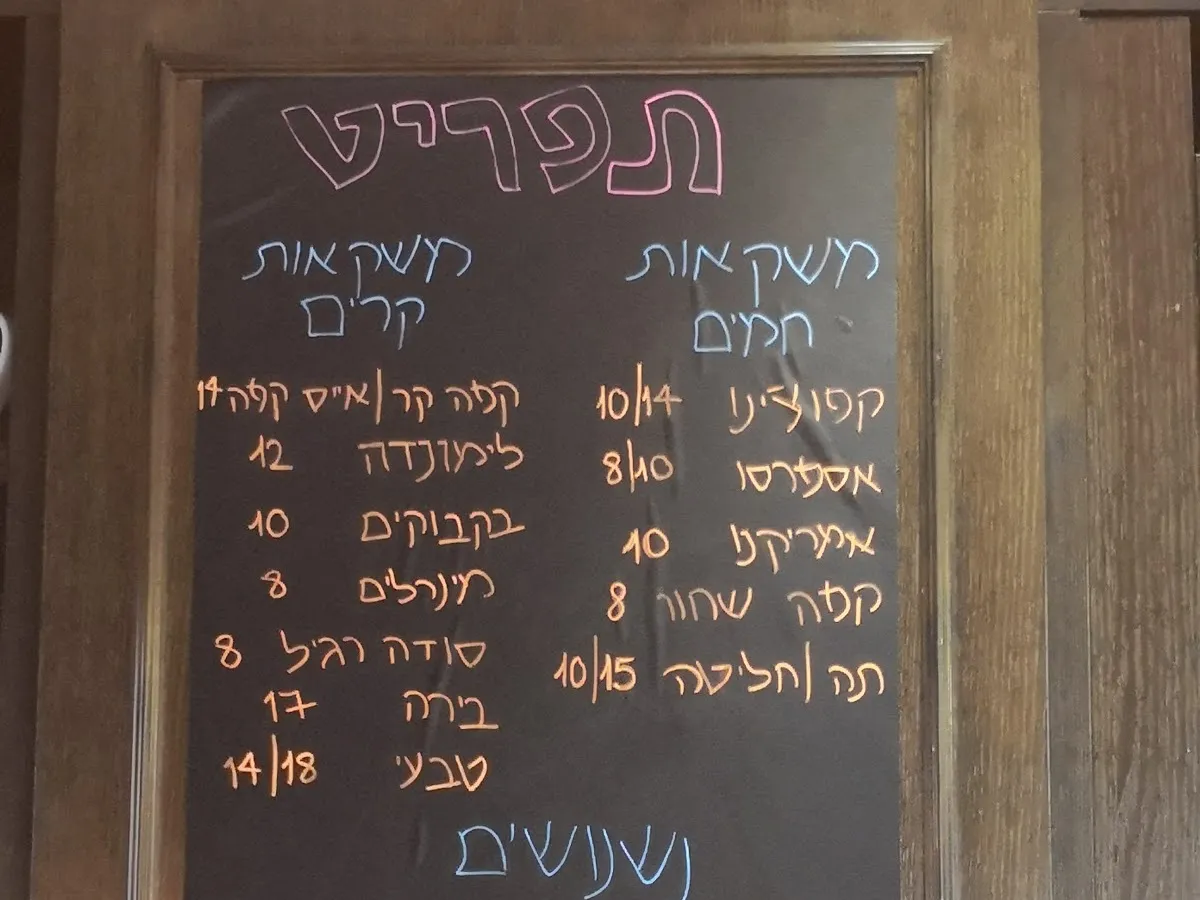 תפריט
משקאות
חמים
קפוצ'ינו 10/14
אספרסו 8/10
אמריקנו 10
קפה שחור 8
תה/חליטה 10/15
משקאות
קרים
קפה קר/אייס קפה 14
לימונדה 12
בקבוקים 10
מינרלים 8
סודה רגיל 8
בירה 17
טבעי 14/18
נשנושים